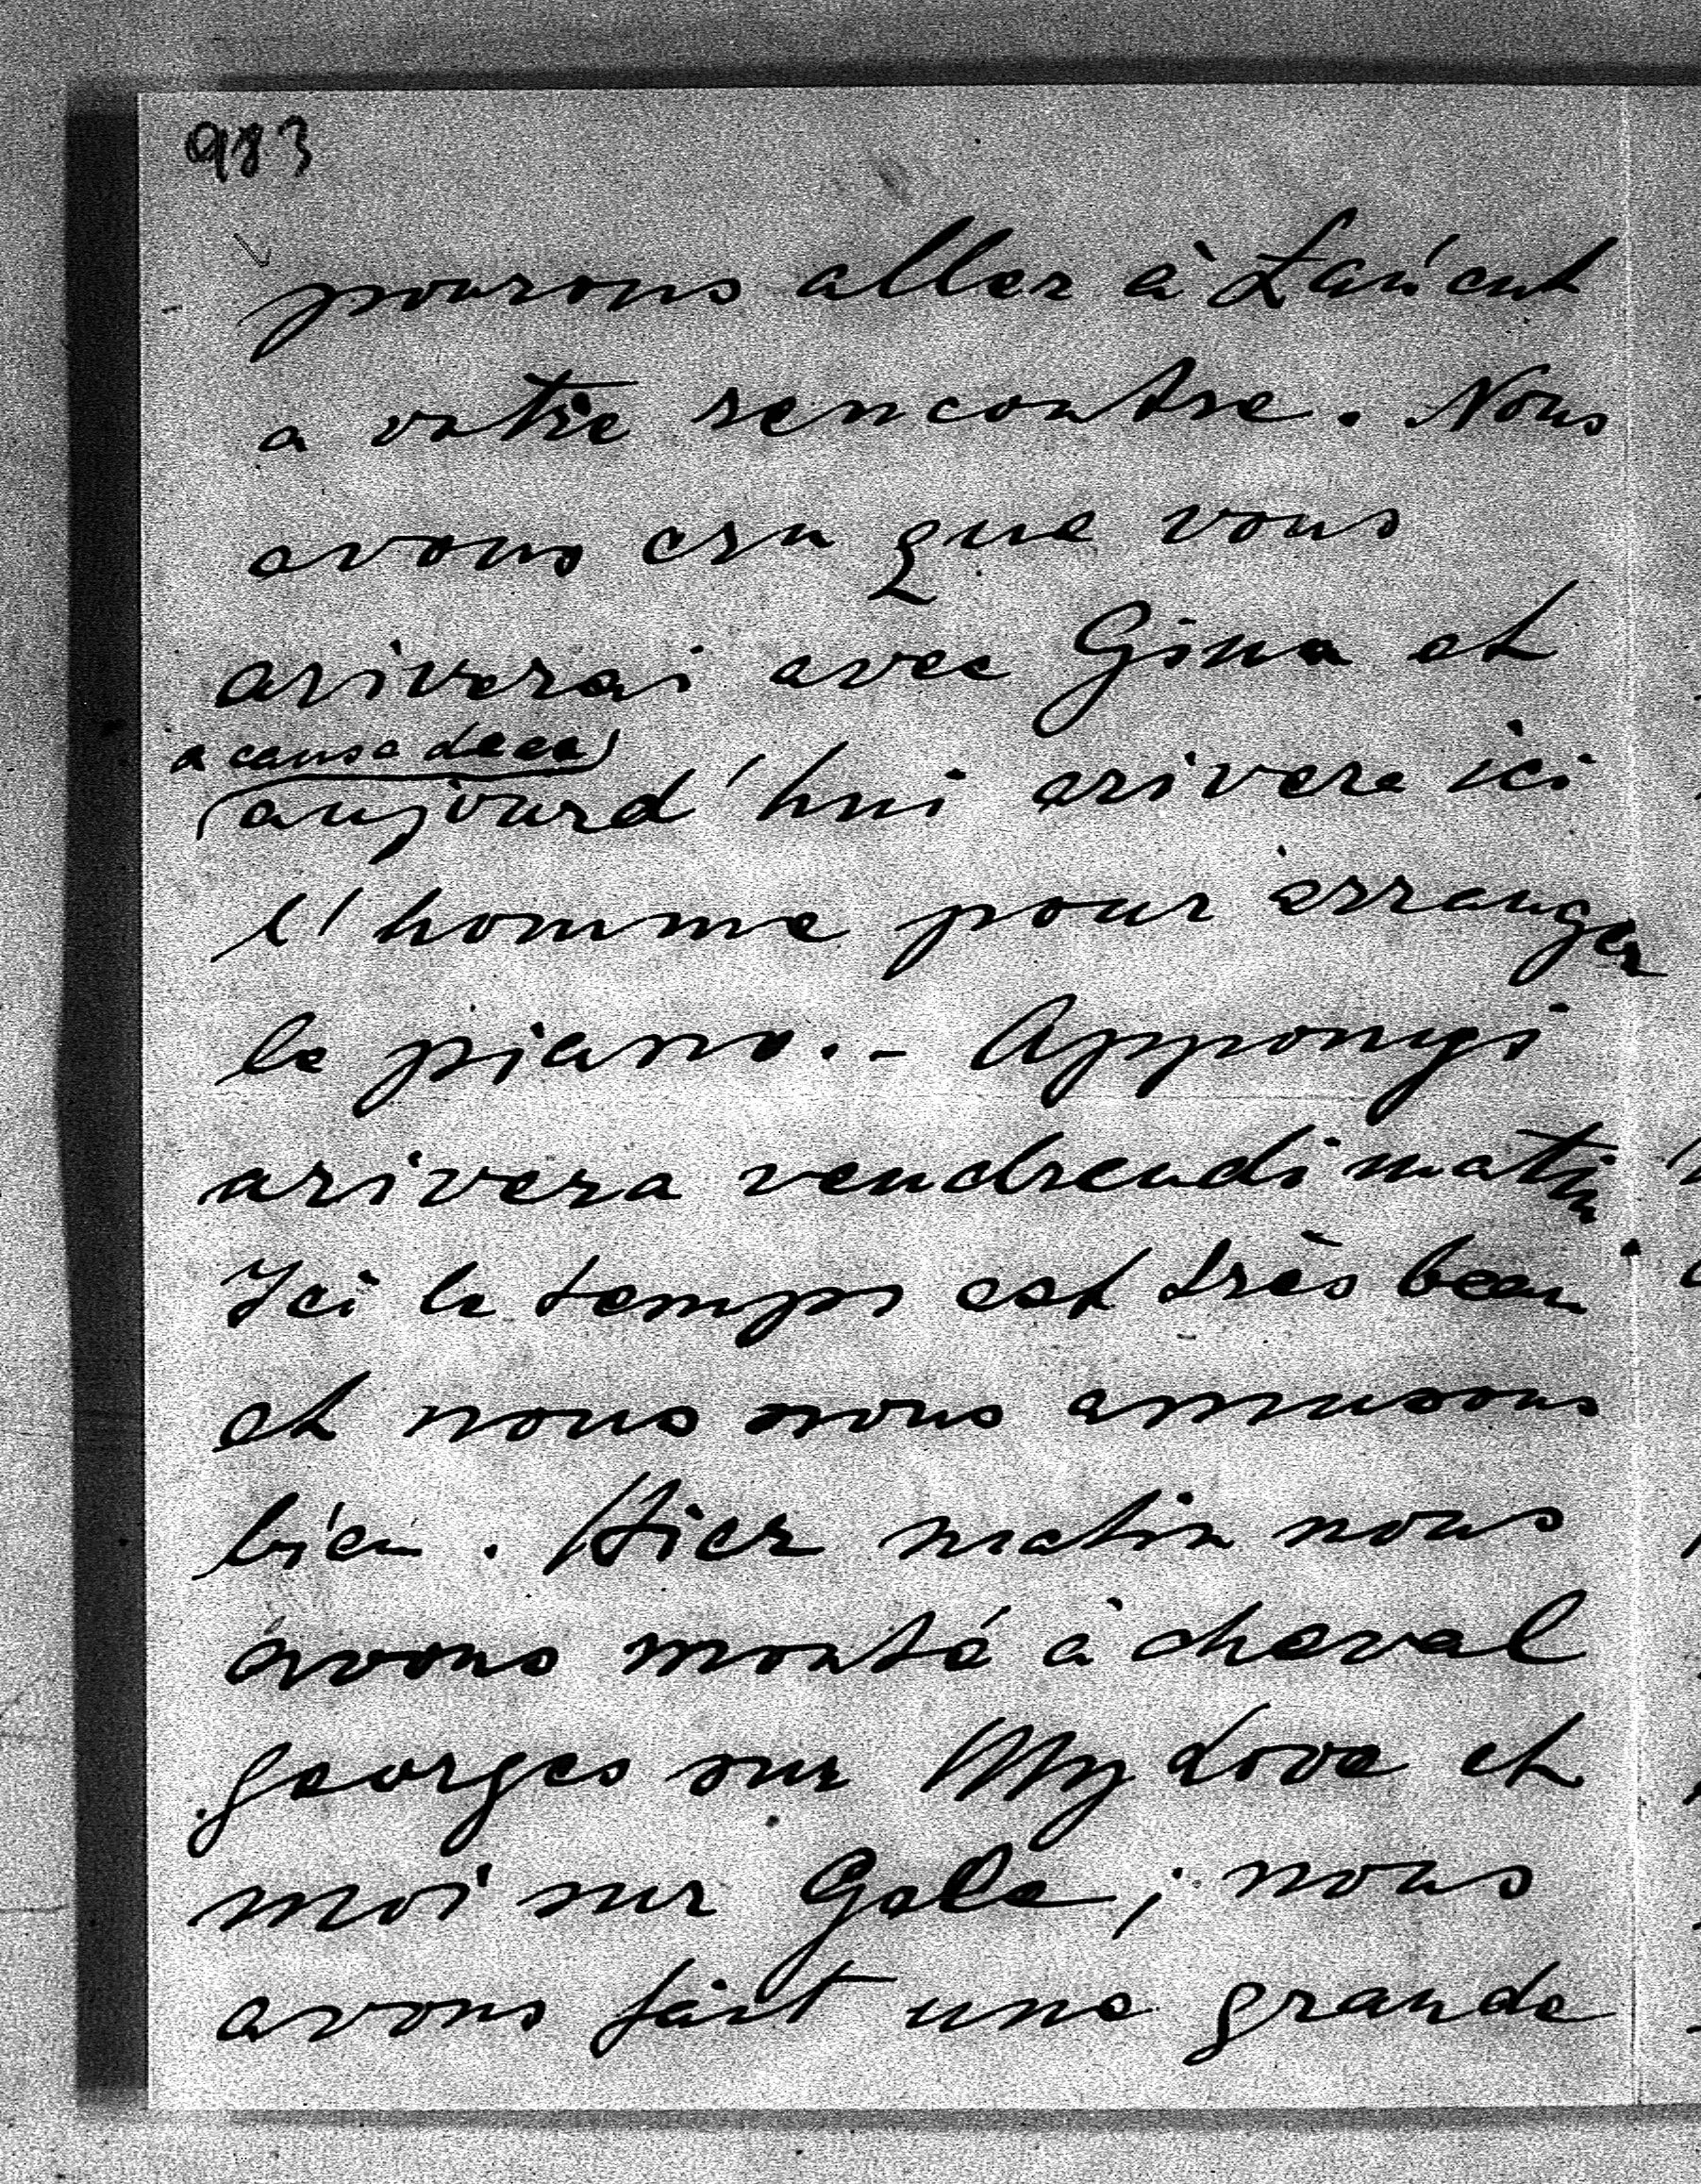 983
pourons aller à Lançut
a votre rencontre. Nous
avons cru que vous
ariverai avec Gina et
a cause de ca
aujourd'hui arivere ici
l'homme pour arranger
le piano.- Apponyi
arivera vendrendi matin
Ici le temps est très beau.
et nous nous amusons
bien. Hier matin nous
avons monté à cheval
georges sur My Love et
moi sur Gala; nous
avons fait une grande